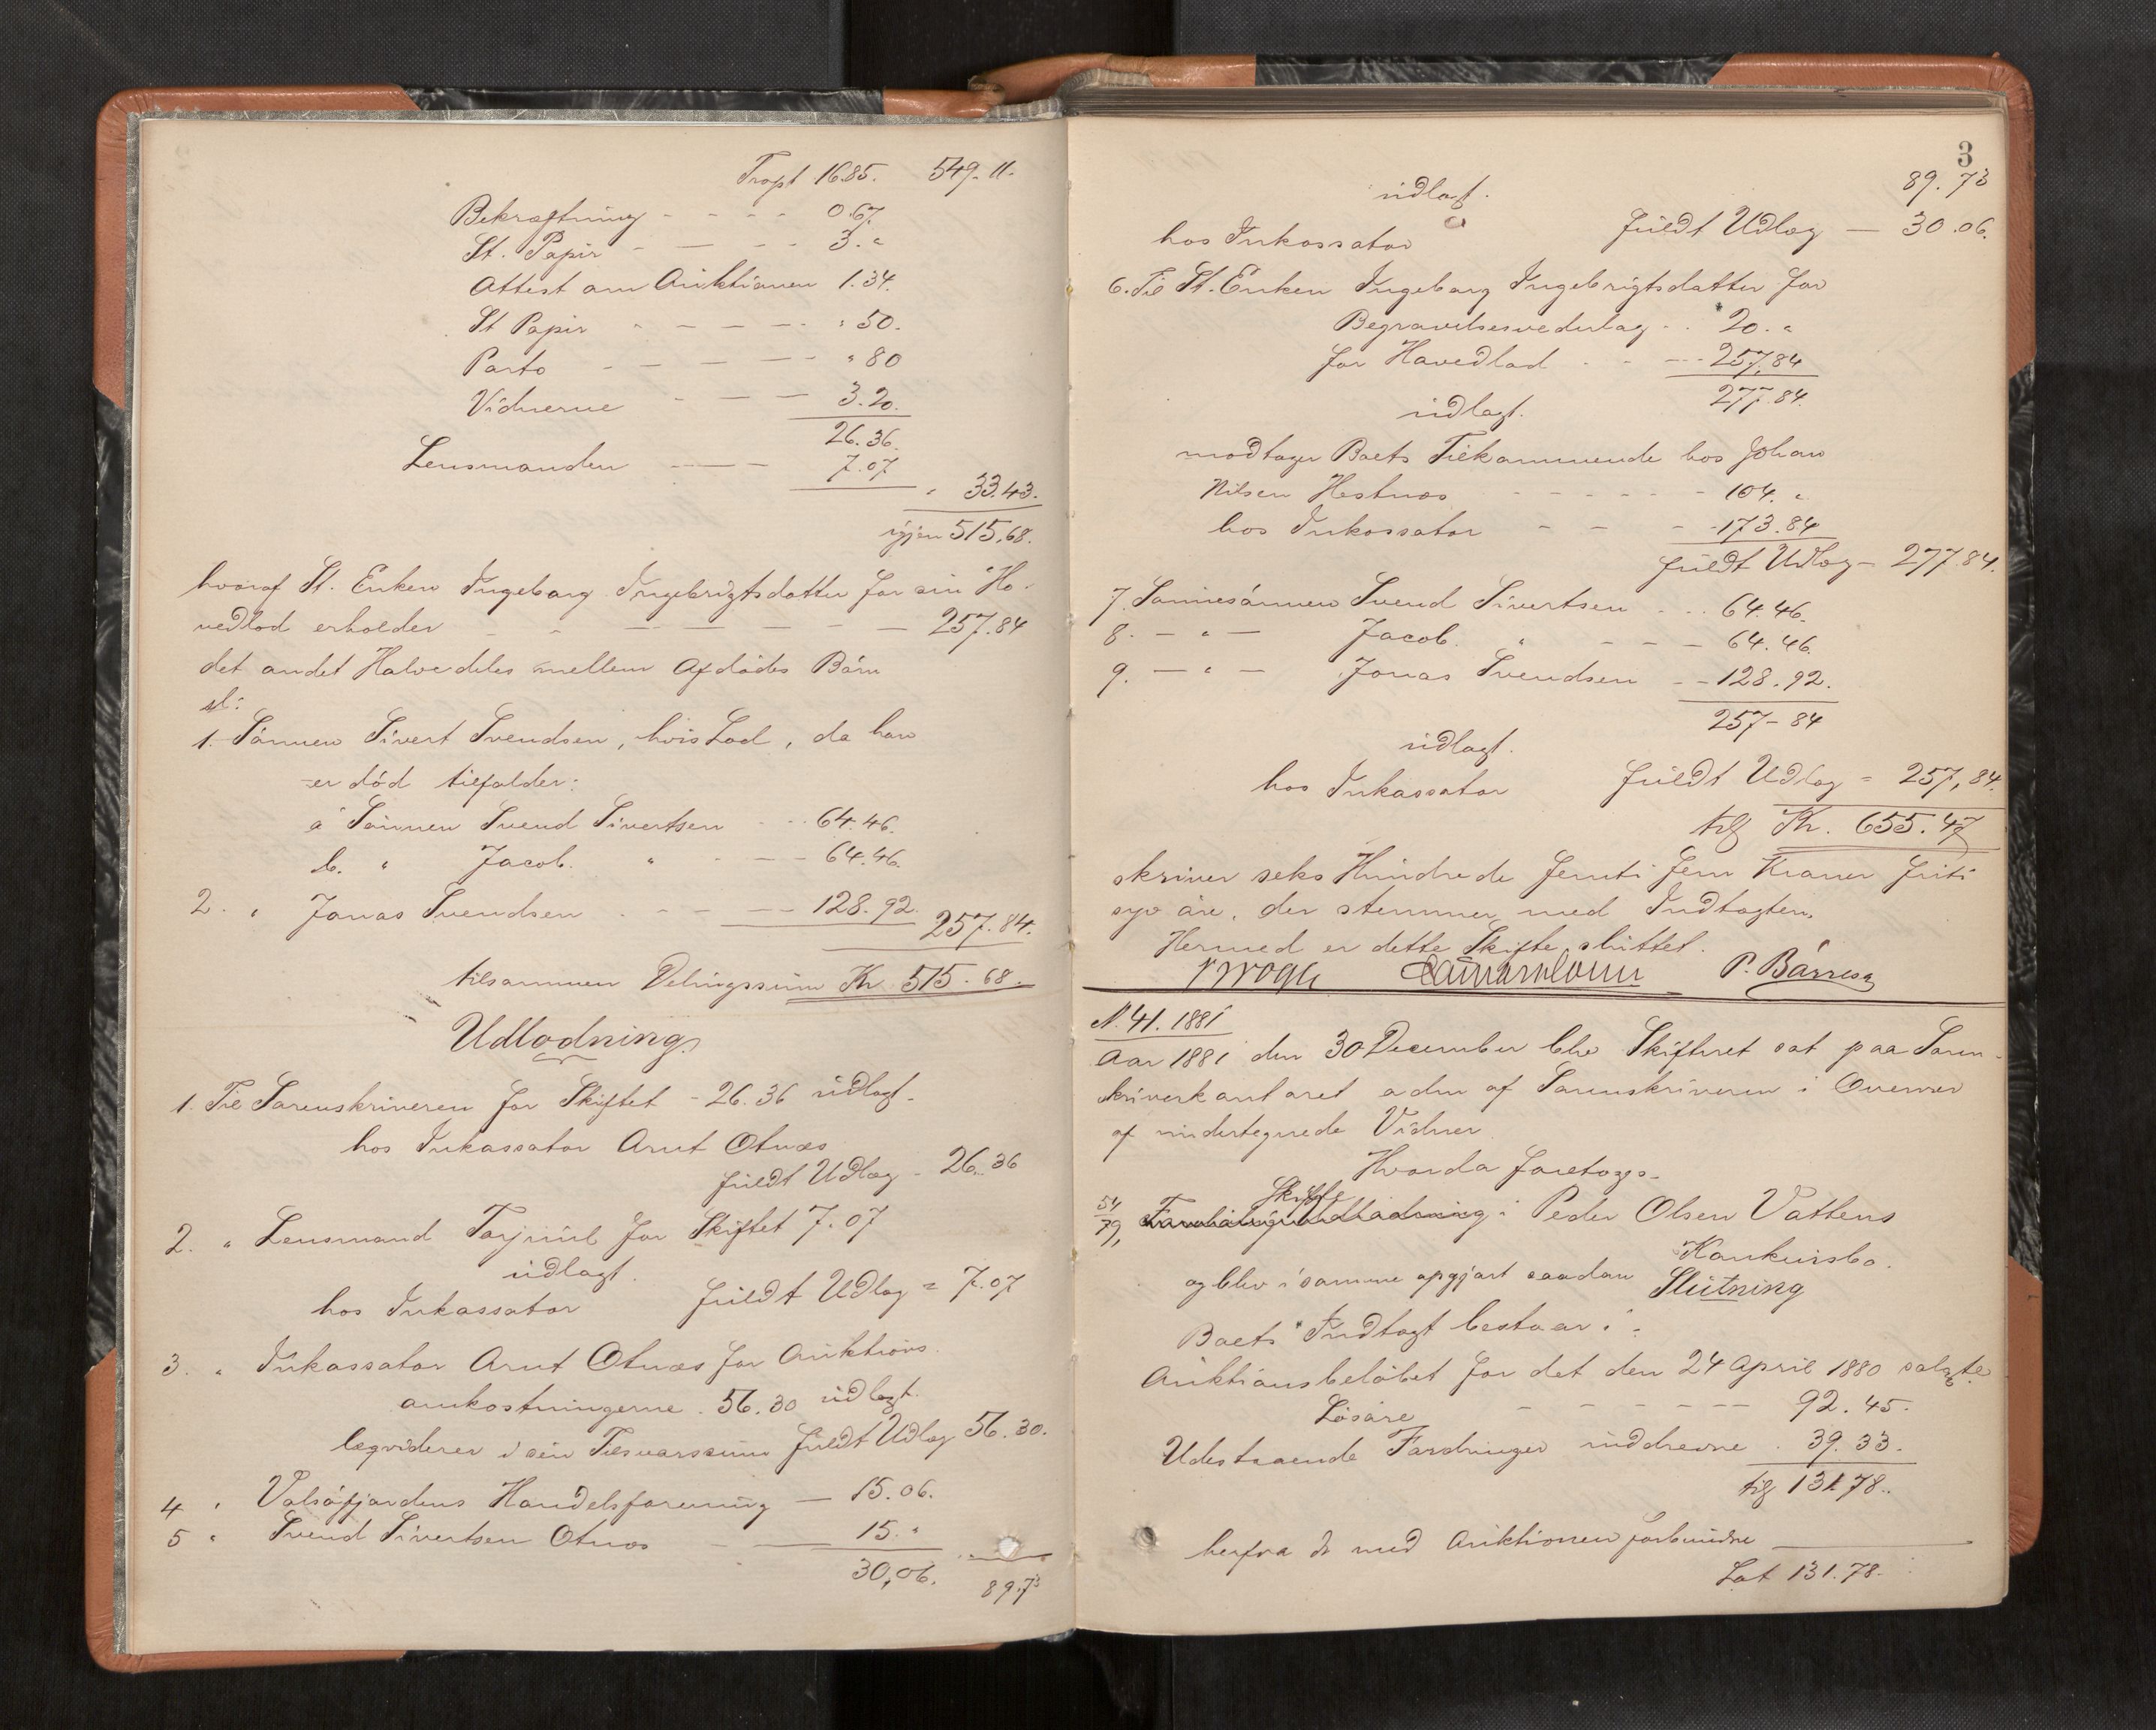 Trspt 16.85. 549.11.
Bekræftning - - - - 0.67.
St. Papir - - - - 3."
Attest om Auktionen 1.34.
St Papir - - - - " 50.
Porto - - - - " 80
Vidnerne - - - 3.20.
26.36.
Lensmanden - - - 7.07
" 33.43.
igjen 515,68.
hvoraf St. Enken Ingeborg Ingebrigtsdatter for sin Ho-
vedlod erholder - - - - - - - 257.84
det andet Halve deles mellem Afdødes Børn
sl:
1. Sønnen Sivert Svendsen, hvis Lod, da han
er død tilfalder:
a Sønnen Svend Sivertsen - - 64.46.
b. " Jacob. " - - - 64.46.
2. " Jonas Svendsen - - - - 128.92. 257.84.
tilsammen Delingssum Kr 515.68.
Udlodning.
1. Til Sorenskriveren for Skiftet - 26.36 udlagt.
hos Inkassator Arnt Otnæs
fuldt Udlæg - 26.36
2. " Lensmand Torjuul for Skiftet 7.07
udlagt.
hos Inkassator fuldt Udlæg = 7.07
3. " Inkassator Arnt Otnæs for Auktions
omkostningerne . 56.30 udlagt.
liqviderer i sin Tilsvarssum fuldt Udlæg 56.30.
4 " Valsøfjordens Handelsforening - 15.06.
5 " Svend Sivertsen Otnæs - - 15."
30,06. 89.73
3
89.73
udlagt.
hos Inkassator fuldt Udlæg - 30.06.
6. Til St. Enken Ingeborg Ingebrigtsdatter for
Begravelsesvederlag - . 20."
for Hovedlod - - - 257,84
277.84.
udlagt.
modtager Boets Tilkommende hos Johan
Nilsen Hestnæs - - - - - - 104. "
hos Inkassator - - - - 173.84
fuldt Udlæg - 277.84.
7. Sønnesønnen Svend Sivertsen - . . 64.46.
8. - " - Jacob. " - - - 64.46.
9. - " - Jonas Svendsen - - 128.92.
257-84
udlagt.
hos Inkassator fuldt Udlæg = 257,84.
tils Kr. 655.47
skriver seks Hundrede femti fem Kroner firti
syv øre, der stemmer med Indtægten.
Hermed er dette Skifte sluttet.
Krogh P. Børresen
N. 41. 1881
Aar 1881 den 30 December blev Skifteret sat paa Soren-
skriverkontoret adm af Sorenskriveren i Overvær
af undertegnede Vidner
Hvorda foretoges.
Skifte
54/79, i Peder Olsen Vattens
Konkursbo.
og blev i samme opgjort saadan Slutning
Boets Indtægt bestaar i:
Auktionsbeløbet for det den 24 April 1880 solgte
Løsøre - - - - - - - 92.45.
Udestaaende Fordringer inddrevne . 39.33.
tils 131.78..
herfra de med Auktionen forbundne
Lat 131.78.